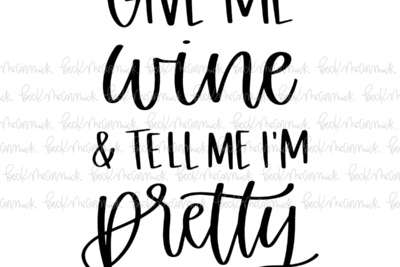 GIVE ME
wine
& TELL ME I'M
pretty